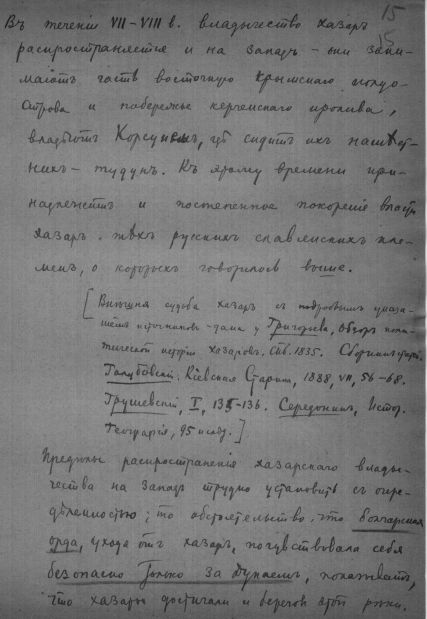 15
15
Въ теченіи VII–VIII в. владычество хазаръ
распространяется и на западъ – они зани-
маютъ часть восточную крымскаго полуо-
строва и побережье керченскаго пролива,
владѣютъ Корсунемъ, гдѣ сидитъ ихъ намѣст-
никъ – тудунъ. Къ этому времени при-
надлежитъ и постепенное покореніе власти
хазаръ тѣхъ русскихъ славянскихъ пле-
менъ, о которыхъ говорилось выше.
[Внѣшняя судьба хазаръ съ подробнымъ указа-
ніемъ источниковъ дана у Григорьева, Обзоръ поли-
тической исторіи хазаровъ. Спб. 1835. Сборникъ
Голубовскій. Кіевская Старина, 1888, VII, 56–68.
Грушевскій, I, 135–136. Середонинъ, Истор.
Географія, 95 и слѣд.]
Предѣлы распространенія хазарскаго влады-
чества на западъ трудно установить съ опре-
дѣленностью; то обстоятельство, что болгарская
орда, уходя отъ хазаръ, почувствовала себя
безопасно только за Дунаемъ, показываетъ,
что хазары достигали и береговъ этой рѣки.